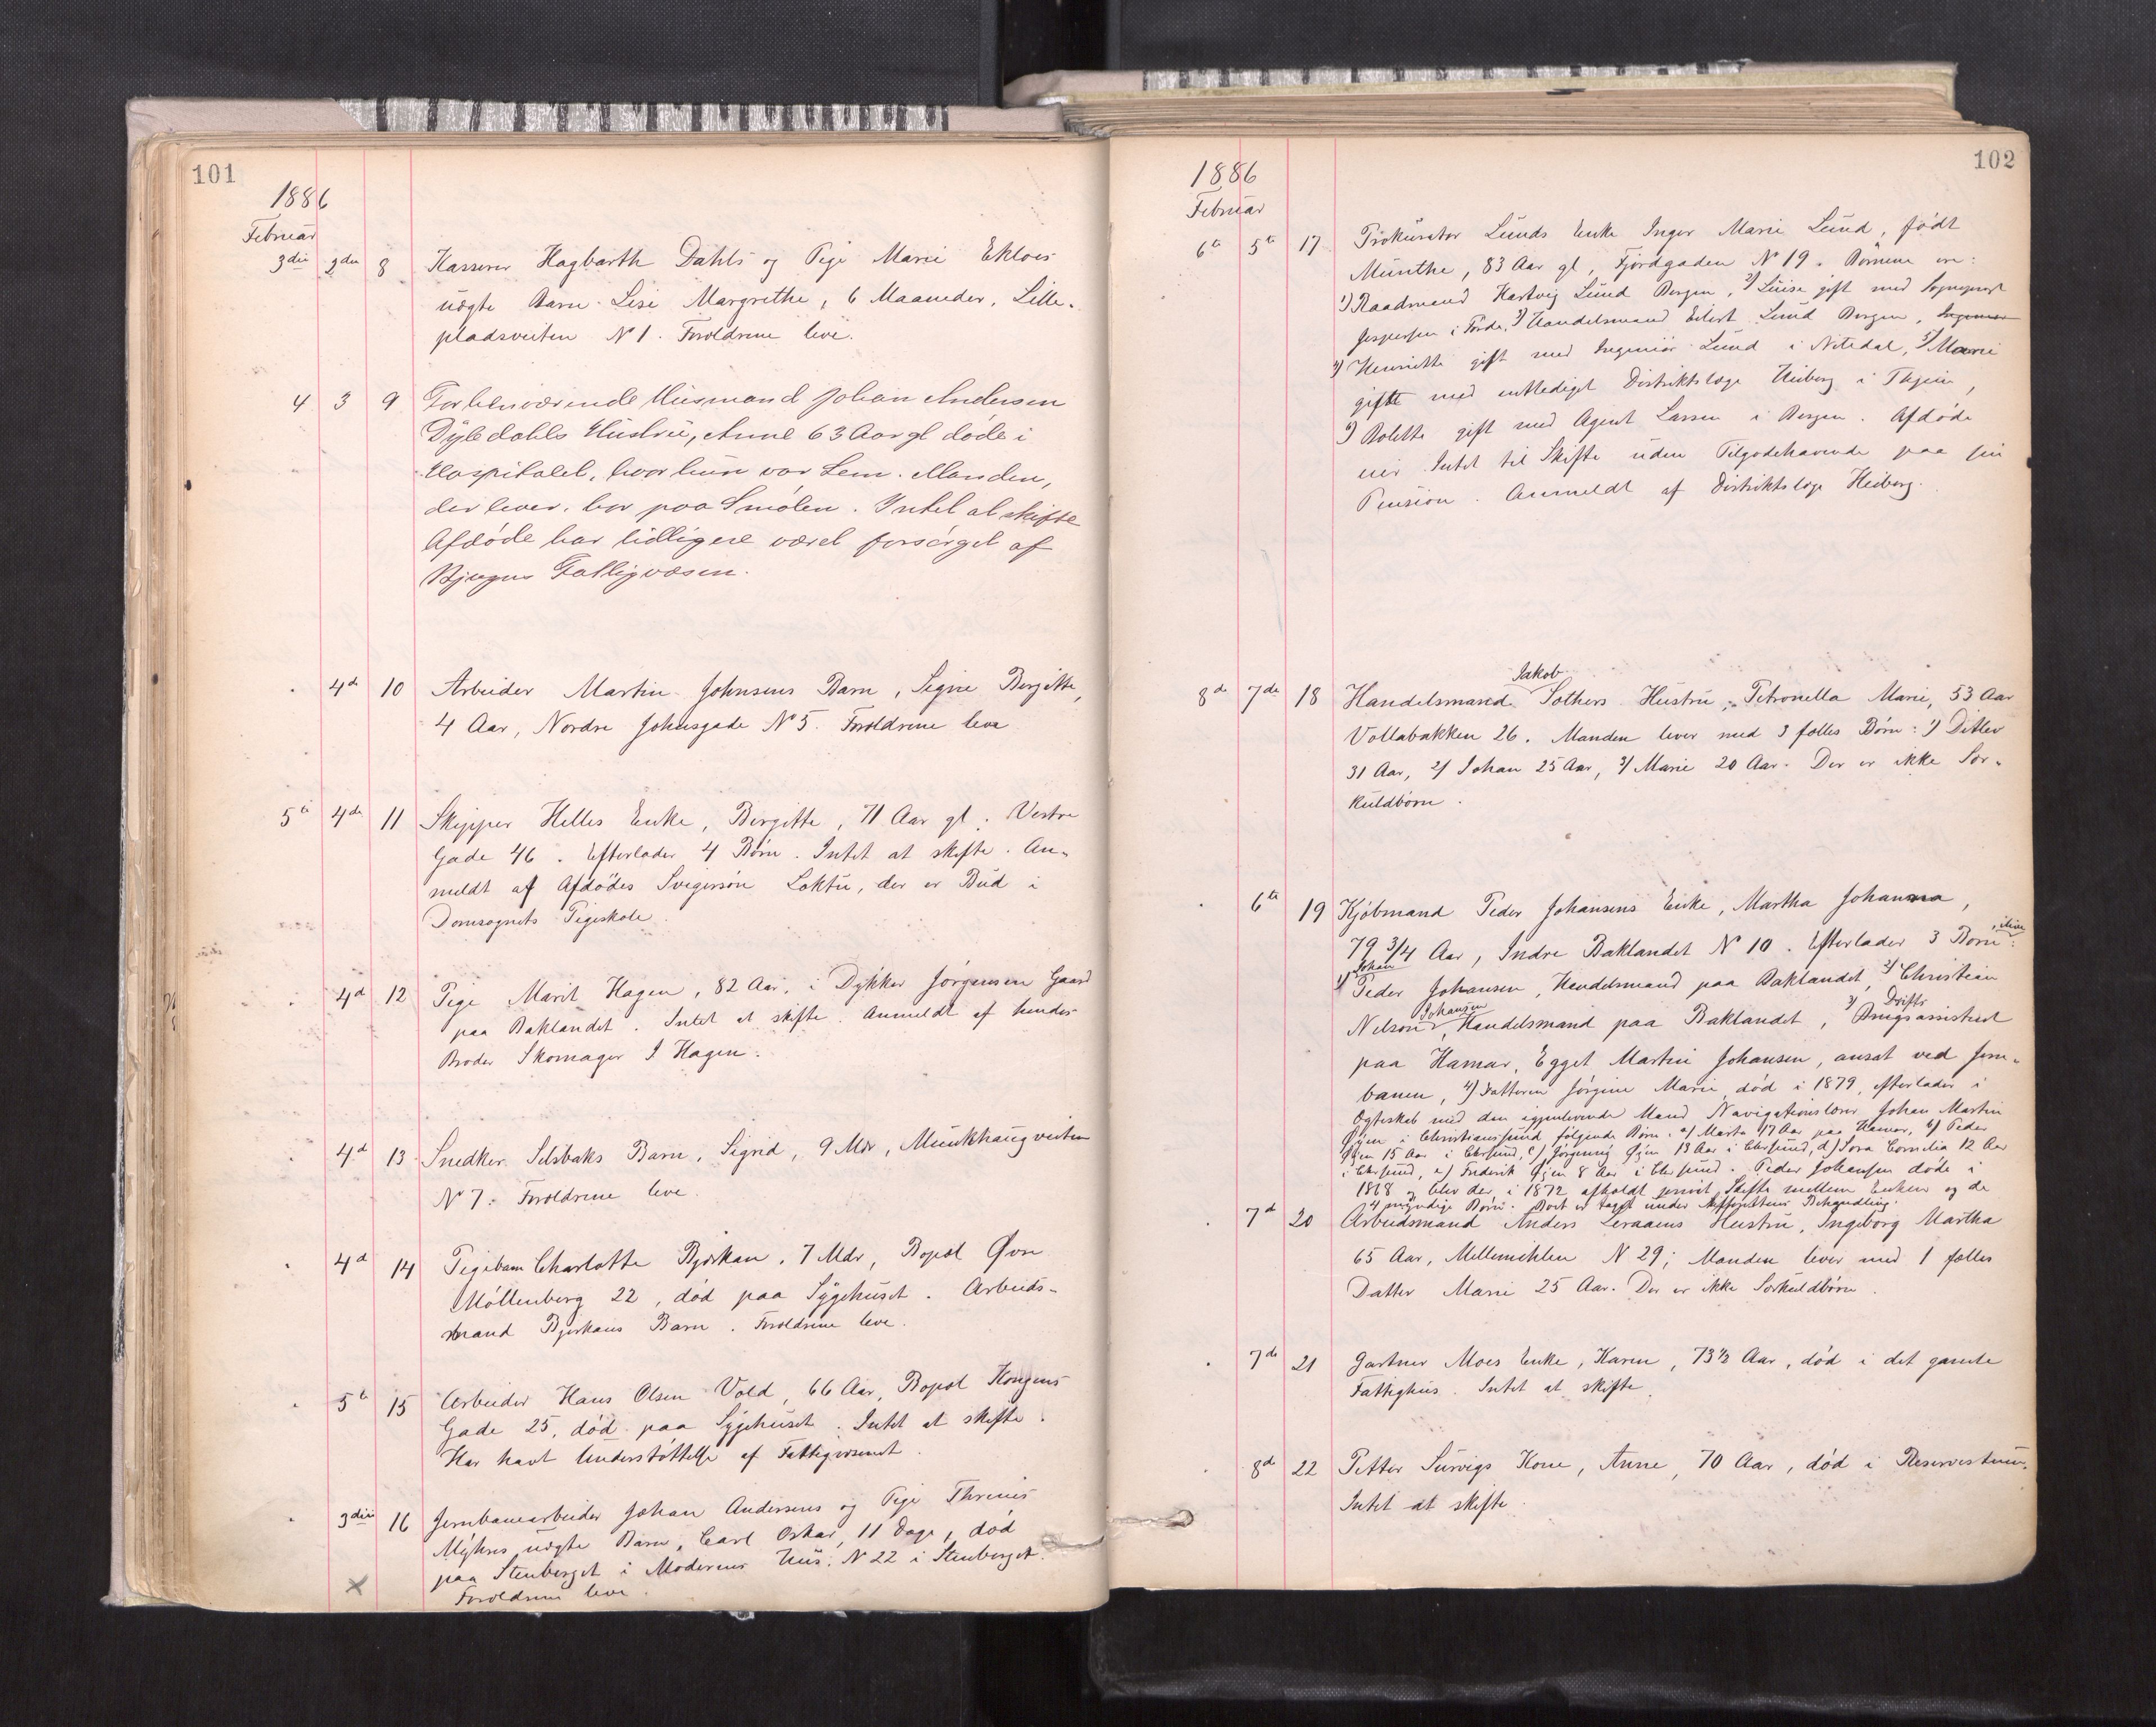 101
1886
Februar
3die 2den 8 Kasserer Hagbarth Dahls og Pige Marie Ekloes
uægte Barn Lise Margrethe, 6 Maaneder, Lille-
pladsveiten No 1. Forældrene leve.
4 3 9 Forhenværende Husmand Johan Andersen
Dyledahls Hustru, Anne 63 Aar gl døde i
Hospitalet, hvor hun var Lem. Manden,
der lever, bor paa Smølen. Intet at skifte
Afdøde har tidligere været forsørget af
Bjugns Fattigvæsen.
4de 10 Arbeider Martin Johnsens Barn, Signe Bergitte,
4 Aar, Nordre Johnsgade No 5. Forældrene leve
5te 4de 11 Skipper Helles Enke, Bergitte, 71 Aar gl. Vestre
Gade 46. Efterlader 4 Børn. Intet at skifte. An-
meldt af Afdødes Svigersøn Loktu, der er Bud i
Domsognets Pigeskole.
4de 12 Pige Marit Hagen, 82 Aar, i Dykker Jørgensens Gaard
paa Baklandet. Intet at skifte. Anmeldt af hendes
Broder Skomager J. Hagen.
4de 13 Snedker Selsbaks Barn, Sigrid, 9 Mdr, Munkhaugveiten
No 7. Forældrene leve.
4de 14 Pigebarn Charlotte Bjerkan, 7 Mdr, Bopæl Øvre
Møllenberg 22, død paa Sygehuset. Arbeids-
mand Bjerkans Barn. Forældrene leve.
5te 15 Arbeider Hans Olsen Vold, 66 Aar, Bopæl Kongens
Gade 25, død paa Sygehuset. Intet at skifte.
Har havt Understøttelse af Fattigvæsenet.
3die 16 Jernbanearbeider Johan Andersens og Pige Thrines
Myhres uægte Barn, Carl Oskar, 11 Dage, død
paa Stenberget i Moderens Hus. N 22 i Stenberget.
Forældrene leve.
102
1886
Februar
6te 5te 17 Prokurator Lunds Enke Inger Marie Lund, født
Munthe, 83 Aar gl, Fjordgaden No 19. Børnene ere:
1) Raadmand Hartvig Lund Bergen, 2) Luise gift med Sogneprest
Jespersen i Førde, 3) Handelsmand Eilert Lund Bergen,
4) Henriette gift med Ingeniør Lund i Nitedal, 5) Marie
gifte med entlediget Distriktslæge Heiberg i Thjem,
6) Bolette gift med Agent Lassen i Bergen. Afdøde
eier Intet til Skifte uden Tilgodehavende paa sin
Pension. Anmeldt af Distriktslæge Heiberg.
8de 7de 18 Handelsmand Jakob Sothers Hustru, Petronella Marie, 53 Aar
Vollabakken 26. Manden lever med 3 fælles Børn: 1) Ditlev
31 Aar, 2) Johan 25 Aar, 3) Marie 20 Aar. Der er ikke Sær-
kuldbørn.
6te 19 Kjøbmand Peder Johansens Enke, Martha Johanna,
79 3/4 Aar, Indre Baklandet No 10. Efterlader 3 Børn ilive:
1) Peder Johan Johansen, Handelsmand paa Baklandet, 2) Christian
Nelson Johansen, Handelsmand paa Baklandet, 3) Driftsassistent
paa Hamar, Egget Martin Johansen, ansat ved Jern-
banen, 4) Datteren Jørgine Marie, død i 1879, efterlader i
Ægteskab med den igjenlevende Mand Navigationslærer Johan Martin
Øjen i Christianssund følgende Børn: a) Marta 17 Aar paa Hamar, b) Peder
Øjen 15 Aar i Chrsund, c) Jørgenig Øjen 13 Aar i Chrsund, d) Sara Cornelia 12 Aar
i Chrsund, e) Frederik Øjen 8 Aar i Chrsund. Peder Johansen døde i
1868 og blev der i 1872 afholdt privat Skifte mellem Enken og de
4 myndige Børn. Boet er taget under Skifterettens Behandling.
7de 20 Arbeidsmand Anders Leraaens Hustru, Ingeborg Martha
65 Aar, Mellemiklen N 29; Manden lever med 1 fælles
Datter Marie 25 Aar. Der er ikke Særkuldbørn.
7de 21 Gartner Moes Enke, Karen, 73 1/2 Aar, død i det gamle
Fattighus. Intet at skifte.
8de 22 Petter Survigs Kone, Anne, 70 Aar, død i Reservestuen.
Intet at skifte.